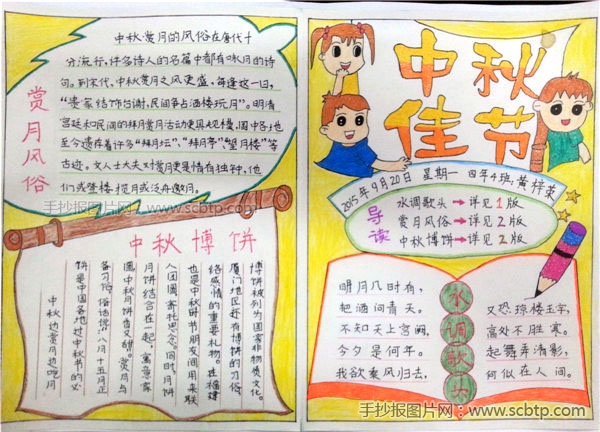 赏月风俗
中秋赏月的风俗在唐代十
分流行,许多诗人的名篇中都有咏月的诗
句。到宋代,中秋赏月之风更盛,每逢这一日,
"贵家结饰台谢,民间争占酒楼玩月"。明清
宫廷和民间的拜月赏月活动更具规模,国中各地
至今遗存着许多"拜月坛"、"拜月亭"、"望月楼"等
古迹。文人士大夫对赏月更是情有独钟,他
们或登楼揽月或泛舟邀月。
手抄报图片网:www.scbtp.com
中秋博饼
中秋边赏月边吃月
饼是中国各地过中秋节的必
备习俗,俗话说:八月十五月正
圆,中秋月饼香又甜。赏月与
月饼结合在一起,寓意家
人团圆寄托思念。同时,月饼
也是中秋时节朋友间用来联
络感情的重要礼物。在福建
厦门地区还有博饼的习俗
博饼被列为国家非物质文化。
中秋
佳节
2015年9月20日 星期一 四年4班:黄梓荣
导读
水调歌头→详见1版
赏月风俗→详见2版
中秋博饼→详见2版
水调歌头
明月几时有,
把酒问青天。
不知天上宫阙,
今夕是何年。
我欲乘风归去,
又恐琼楼玉宇,
高处不胜寒。
起舞弄清影,
何似在人间。
手抄报图片网:www.scbtp.com